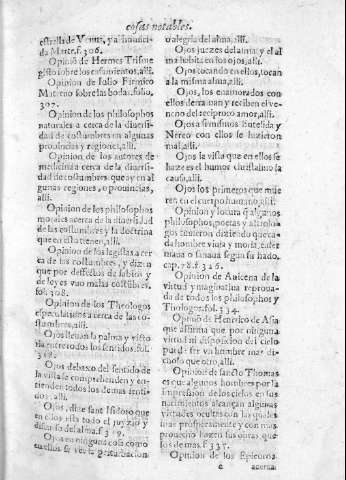 cosas notables.
estrella de Venus, y a
da Marte. f. 306.
Opinion de Hermes Trisme
gisto sobre los casamientos, alli.
Opinion de Iulio Firmico
Materno sobre las boda. folio,
307.
Opinion de los philosophos
naturales a cerca de la diuersi
dad de costumbres en algunas
prouincias y regiones, alli.
Opinion de los autores de
medicina a cerca de la diuersi
dad de costumbres, que ay en al
gunas regiones, o prouincias,
alli.
Opinion de los philosophos
morales acerca de la
de las costumbres y la doctrina
que en esta tienen, alli.
Opinion de los legistas a cer
ca de las costumbres, y dizen
que por deffectos de sabios y
de leyes vuo malas costūbres.
fol. 308.
Opinion de los Theologos
especulatiuos a cerca de las cos-
tumbres, alli.
Ojos lleuan la palma y visto
ria entre todos los sentidos. fol.
318.
Ojos debaxo del sentido de
la vista se comprehenden y en-
tienden todos los demas senti-
dos. alli.
Ojos, dize sant Isidoro que
en ellos esta todo el juyzio y
del alma. f. 319.
Ojos en ninguna cosa como
en ellos se vee la perturbacion
o alegria del alma, alli.
Ojos juezes del alma: y el al
ma habita en los ojos, alli.
Ojos tocando en ellos, tocan
a la misma alma, alli.
Ojos, los enamorados con
ellos derraman y reciben el ve-
neno del reciproco amor, alli.
Ojos a
Nereo con ellos se hizieron
mal, alli.
Ojos la vista que en ellos se
haze es el humor christalino la
causa, alli.
Ojos los primeros que mue
ren en el cuerpo humano, alli.
Opinion y locura q̃ algunos
philosophos, poetas y astrolo-
gos tuuieron diziendo que ca-
da hombre viuia y moria, enfer
maua o sanaua segun su hado.
cap. 78. f. 326.
Opinion de Auicena de la
virtud ymaginatiua reproua-
da de todos los philosophos y
Theologos. fol. 334.
Opiniō de Henrico de Asia
que affirma que por ninguna
virtud ni disposicion del cielo
puede ser vn hombre mas di-
choso que otro, alli.
Opinion de sancto Thomas
es que algunos hombres por la
impression de los cielos en sus
nacimientos alcançan algunas
virtudes ocultas con las quales
mas prosperamente y con mas
prouecho hazen sus obras que
los de mas. f. 337.
Opinion de los Epicuros
e acerca